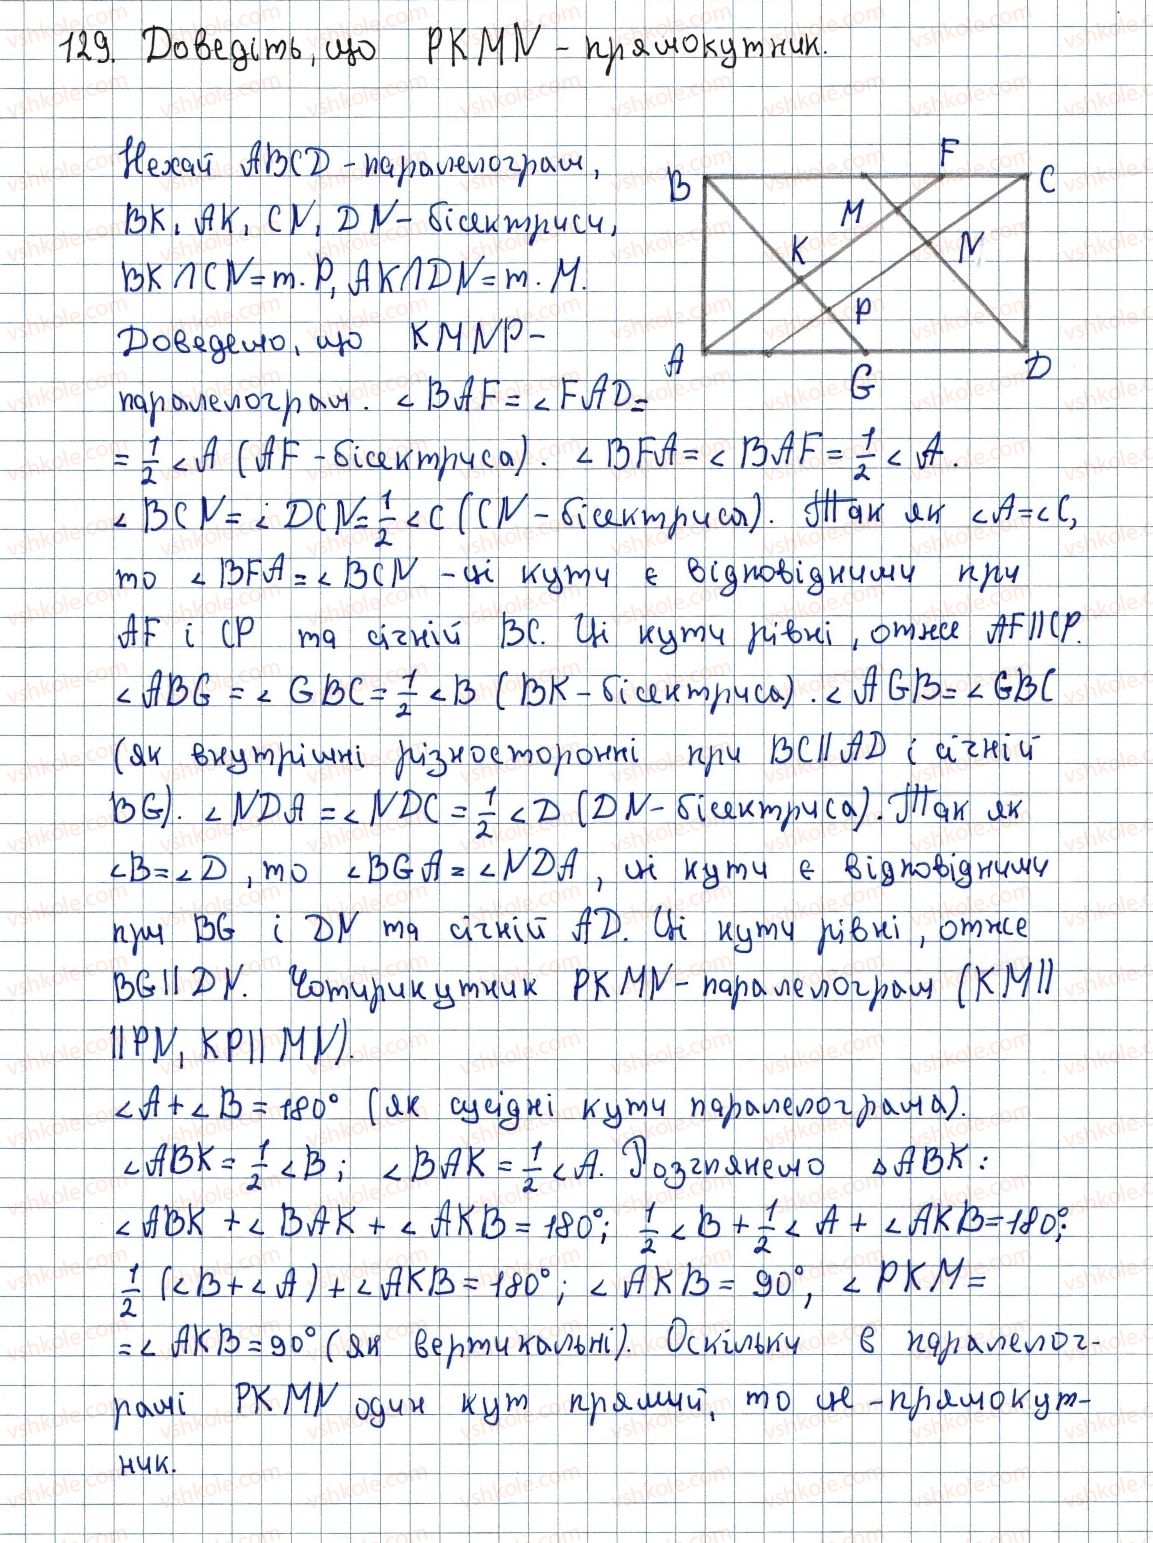 129. Доведіть, що PKMN - прямокутник.
Нехай ABCD - паралелограм,
BK, AK, CN, DN - бісектриси,
BK ∩ CN = т. P, AK ∩ DN = т. M.
Доведемо, що KMNP -
паралелограм. ∠BAF = ∠FAD =
= 1/2 ∠A (AF - бісектриса). ∠BFA = ∠BAF = 1/2 ∠A.
∠BCN = ∠DCN = 1/2 ∠C (CN - бісектриса). Так як ∠A = ∠C,
то ∠BFA = ∠BCN - ці кути є відповідними при
AF і CP та січній BC. Ці кути рівні, отже AF || CP.
∠ABG = ∠GBC = 1/2 ∠B (BK - бісектриса). ∠AGB = ∠GBC
(як внутрішні різносторонні при BC || AD і січній
BG). ∠NDA = ∠NDC = 1/2 ∠D (DN - бісектриса). Так як
∠B = ∠D, то ∠BGA = ∠NDA, ці кути є відповідними
при BG і DN та січній AD. Ці кути рівні, отже
BG || DN. Чотирикутник PKMN - паралелограм (KM ||
|| PN, KP || MN).
∠A + ∠B = 180° (як сусідні кути паралелограма).
∠ABK = 1/2 ∠B; ∠BAK = 1/2 ∠A. Розглянемо △ABK:
∠ABK + ∠BAK + ∠AKB = 180°; 1/2 ∠B + 1/2 ∠A + ∠AKB = 180°;
1/2 (∠B + ∠A) + ∠AKB = 180°; ∠AKB = 90°, ∠PKM =
= ∠AKB = 90° (як вертикальні). Оскільки в паралелог-
рамі PKMN один кут прямий, то це - прямокут-
ник.
B
F
C
M
K
N
P
A
G
D
vshkole.com